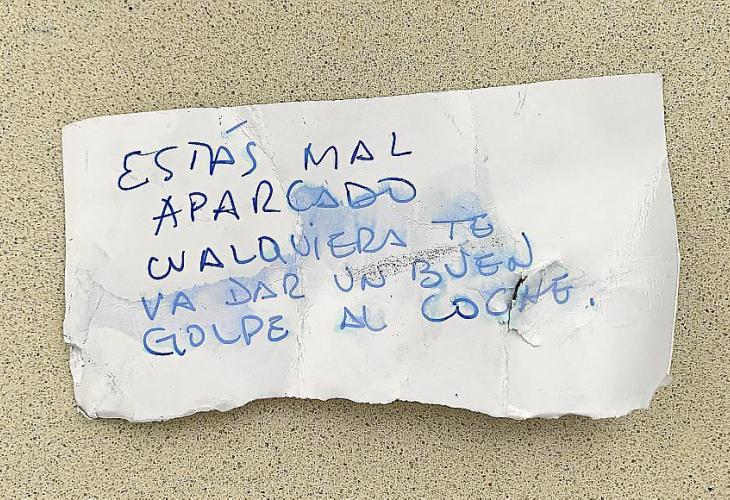 ESTÁS MAL
APARCADO
CUALQUIERA TE
VA DAR UN BUEN
GOLPE AL COCHE.